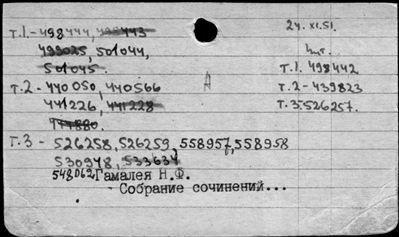 т.1.-498444, 498443
499025, 501044,
501045.
т.2.-440050, 440566
441226, 441228
т.3 - 526258, 526259, 558957, 558958
530948, 533634
548062 Гамалея Н.Ф.
Собрание сочинений...
А
24.XI.51.
т.1. 498442
т.2-439823
т.3.526257.